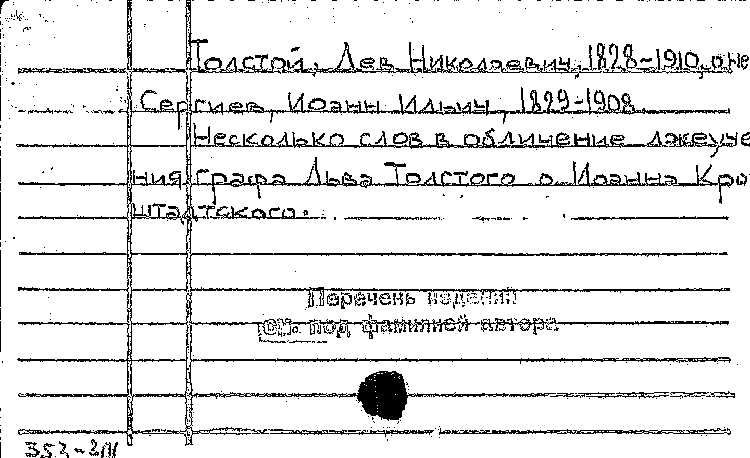 Толстой, Лев Николаевич, 1828-1910, о не
Сергиев, Иоанн Ильич, 1829-1908
Несколько слов в обличение лжеуче
ния графа Льва Толстого о. Иоанна Кро
штадтского.
Перечень изданий
см. под фамилией автора